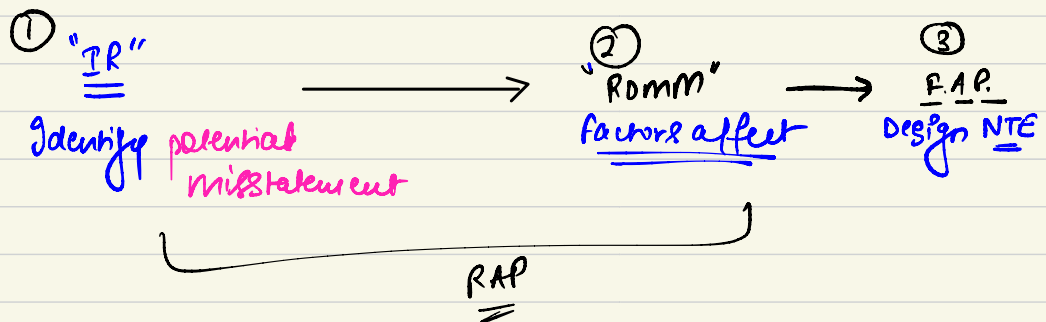 ① "IR"
Identify potential
misstatement
② "ROMM"
factors affect
③
F.A.P.
Design NTE
RAP